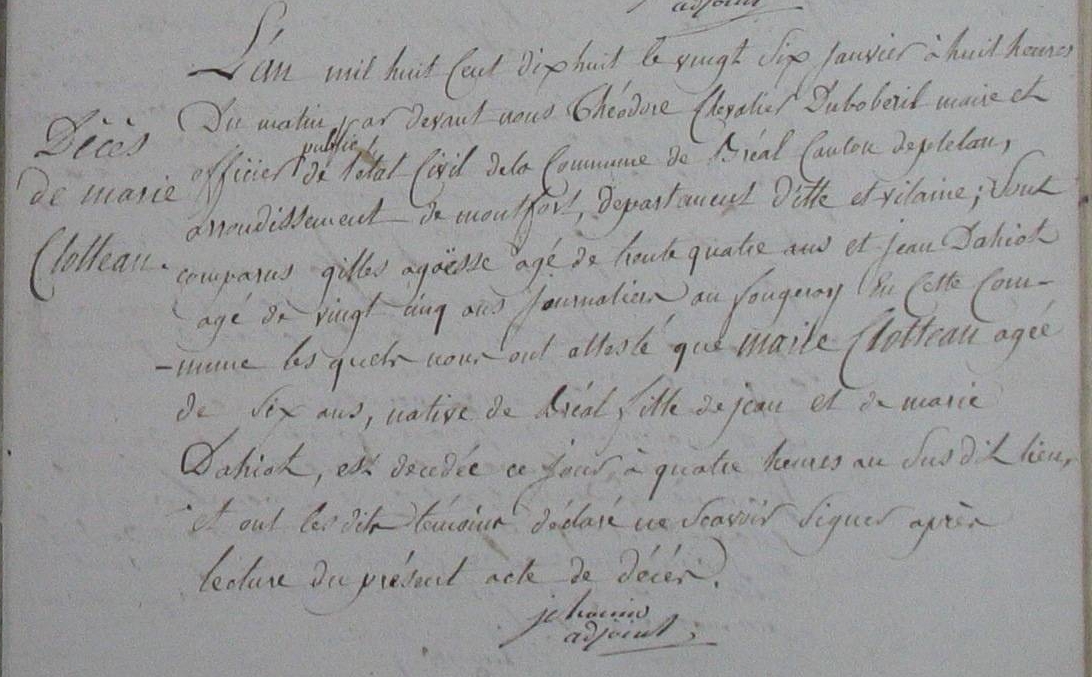 adjoint
L'an mil huit Cent dix huit le vingt Six janvier à huit heures
Du matin par devant nous Théodore Chevalier Duboberil maire et
public
officier de l'état Civil de la Commune de Bréal Canton de plelan,
arrondissement de montfort, departement d'itte et vilaine; Sont
comparus gilles agaësse agé de trente quatre ans et jean Dahiot
agé de vingt cinq ans journaliers au fougeray En Cette Com-
-mune les quels nous ont attesté que marie Clotteau agée
de Six ans, native de Bréal fille de jean et de marie
Dahiot, est decedée ce jour à quatre heures au Sus dit lieu,
et ont les dits témoins déclaré ne Scavoir Signer après
lecture du présent acte de décès.
adjoint
Décès
de marie
Clotteau.